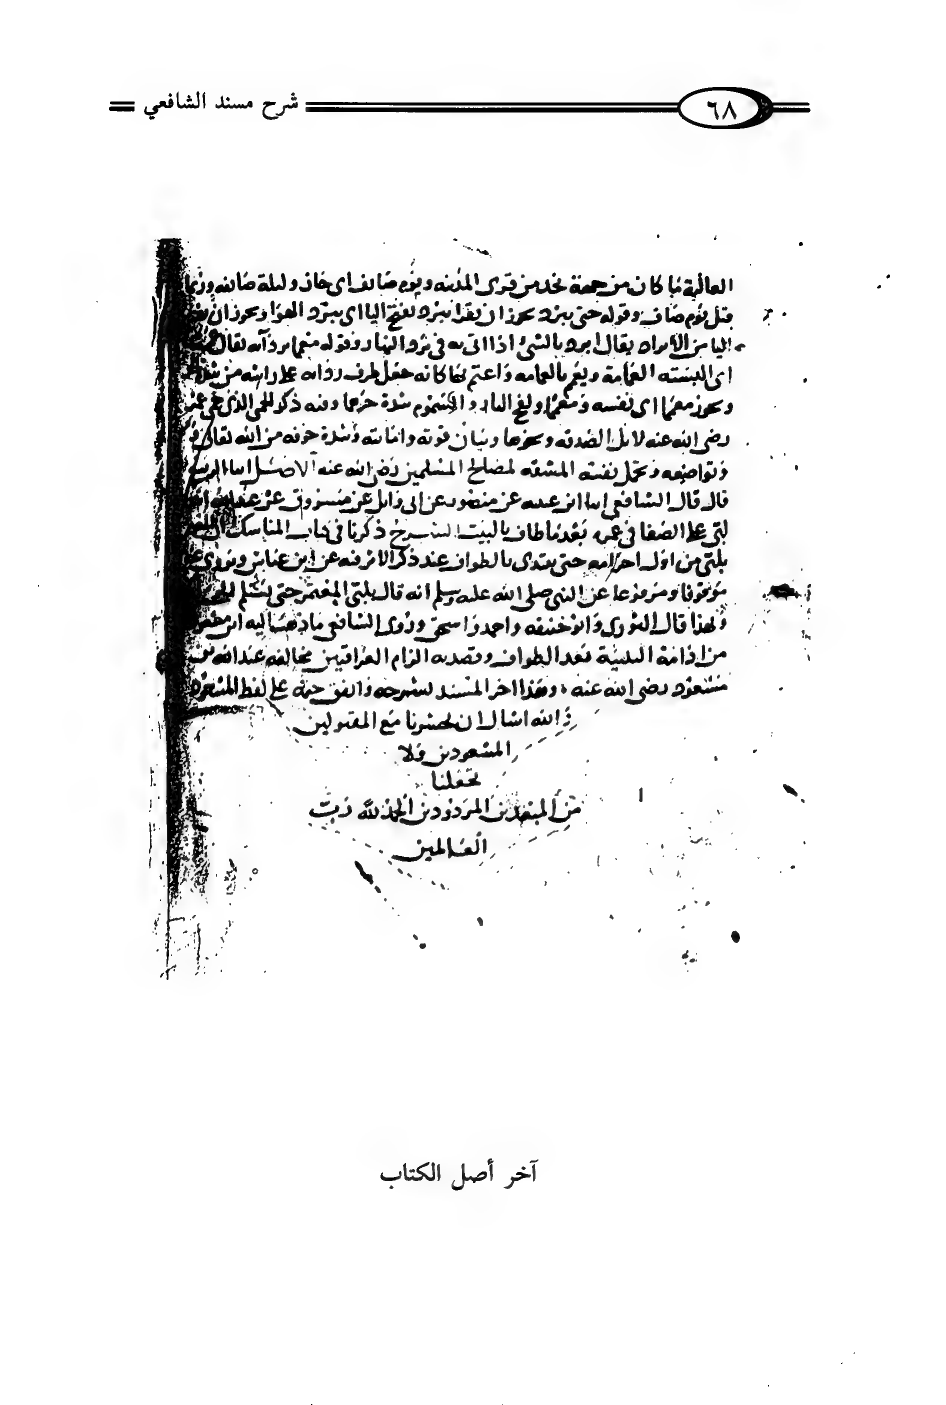 شرح مسند الشافعي
٦٨
العالية ما كان من جهة نجد من قرى المدينة ويوم صائف اي حار وليلة صائفة
قيل يوم صاف وقوله حتى يبرد يجوز ان يقرا يبرد بفتح اليا اي يبرد الهوا ويجوز ان
اليا من الابراد يقال ابرد بالشي اذا اتى به في برد النهار وقوله معمما بردآيه يقال
اي البسته العمامة واعتم كانه جعل طرف ردائه على راسه من شدة
ويجوز معمما اي نفسه ومعمما والسموم شدة حرها وفيه ذكر الحمى الذي حمى عمر
رضي الله عنه لابل الصدقة ونحوها وبيان قوته وامانته وشدة خوفه من الله تعالى
وتواضعه وتحمل نفسه المشقة لمصالح المسلمين رضي الله عنه الاصل
قال قال الشافعي ابنا ابن عيينه عن منصور عن ابي وائل عن مسروق عن عبدالله
لبى على الصفا في عمرة بعد ما طاف بالبيت الشرح ذكرنا في كتاب المناسك ان
يلبي من اول احرامه حتى يبتدي بالطواف عند ذكر الاثر فيه عن ابن عباس ويروى
موقوفا ومرفوعا عن النبي صلى الله عليه وسلم انه قال يلبي المعتمر حتى يستلم الحجر
ولهذا قال الثوري وابو حنيفه واحمد واسحق وروى الشافعي ما ذهب اليه ابن مسعود
من ادامة التلبية بعد الطواف وقصد به الزام العراقيين مخالفة عبد الله بن
مسعود رضي الله عنه وهذا اخر المسند لشرحه واتفق ختمه على لفظ المسعود
والله اسال ان يحشرنا مع المقبولين
المسعودين ولا
يجعلنا
من المبعدين المردودين الحمد لله رب
العالمين
آخر أصل الكتاب